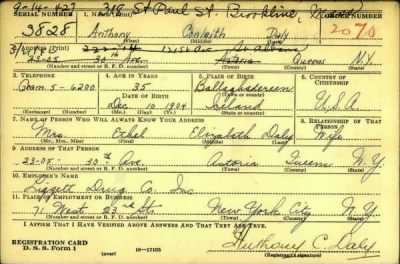 9-14-42 7 318 St Paul St Brookline, Mass
SERIAL NUMBER 1. NAME (Print) ORDER NUMBER
3828 Anthony Daly 2070
(First) (Middle) (Last)
2. ADDRESS (Print)
23-05 30th Ave. Astoria Queens N.Y.
(Number and street or R. F. D. number) (Town) (County) (State)
3. TELEPHONE 4. AGE IN YEARS 5. PLACE OF BIRTH 6. COUNTRY OF CITIZENSHIP
35
DATE OF BIRTH
5-4200 Dec 10 1904 Ireland U.S.A.
(Exchange) (Number) (Mo.) (Day) (Yr.) (State or country)
7. NAME OF PERSON WHO WILL ALWAYS KNOW YOUR ADDRESS 8. RELATIONSHIP OF THAT PERSON
Mrs. Ethel Elizabeth Daly Wife
(Mr., Mrs., Miss) (First) (Middle) (Last)
9. ADDRESS OF THAT PERSON
23-05- 30th Ave. Astoria Queens N.Y.
(Number and street or R. F. D. number) (Town) (County) (State)
10. EMPLOYER'S NAME
Liggett Drug Co. Inc
11. PLACE OF EMPLOYMENT OR BUSINESS
71 West 23rd St. New York City N.Y.
(Number and street or R. F. D. number) (Town) (County) (State)
I AFFIRM THAT I HAVE VERIFIED ABOVE ANSWERS AND THAT THEY ARE TRUE.
REGISTRATION CARD
D. S. S. Form 1 (over) 16-17105 Anthony C. Daly
(Registrant's signature)